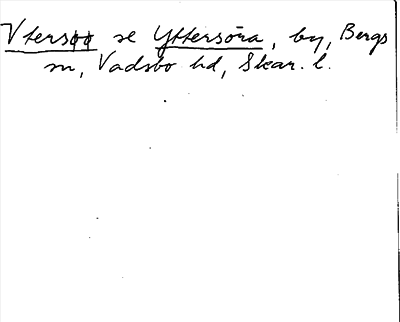 Vtersøø se Yttersöra, by, Bergs
sn, Vadsbo hd, Skar. l.